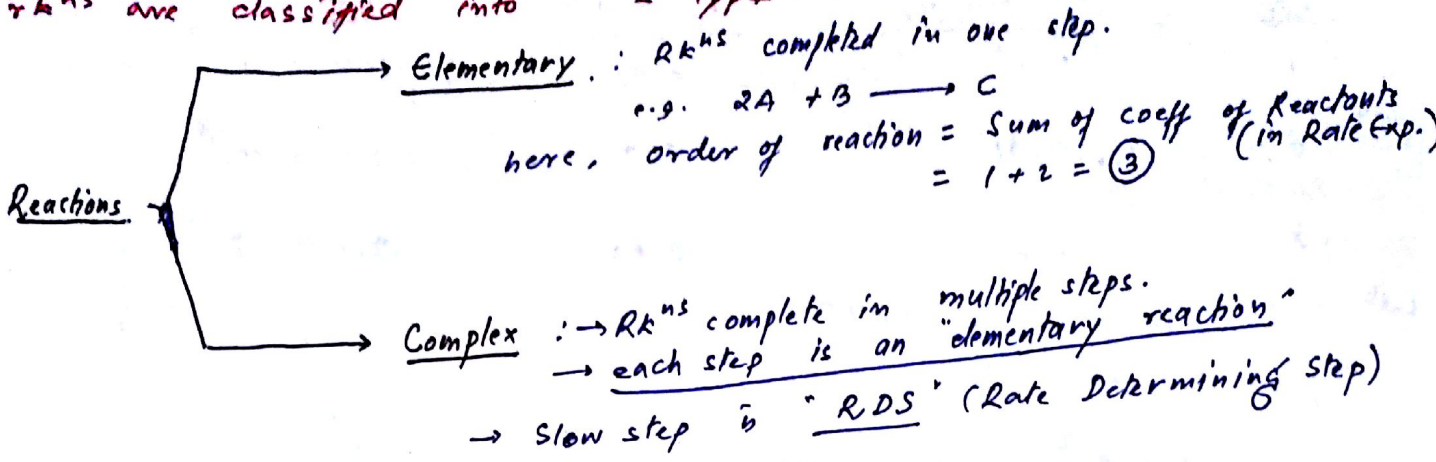 are classified into
Elementary : Rkⁿˢ completed in one step.
e.g. 2A + B ⟶ C
here, order of reaction = Sum of coeff of Reactants (in Rate Exp.)
= 1 + 2 = ③
Reactions
Complex : → Rkⁿˢ complete in multiple steps.
→ each step is an "elementary reaction"
→ Slow step is "RDS" (Rate Determining Step)